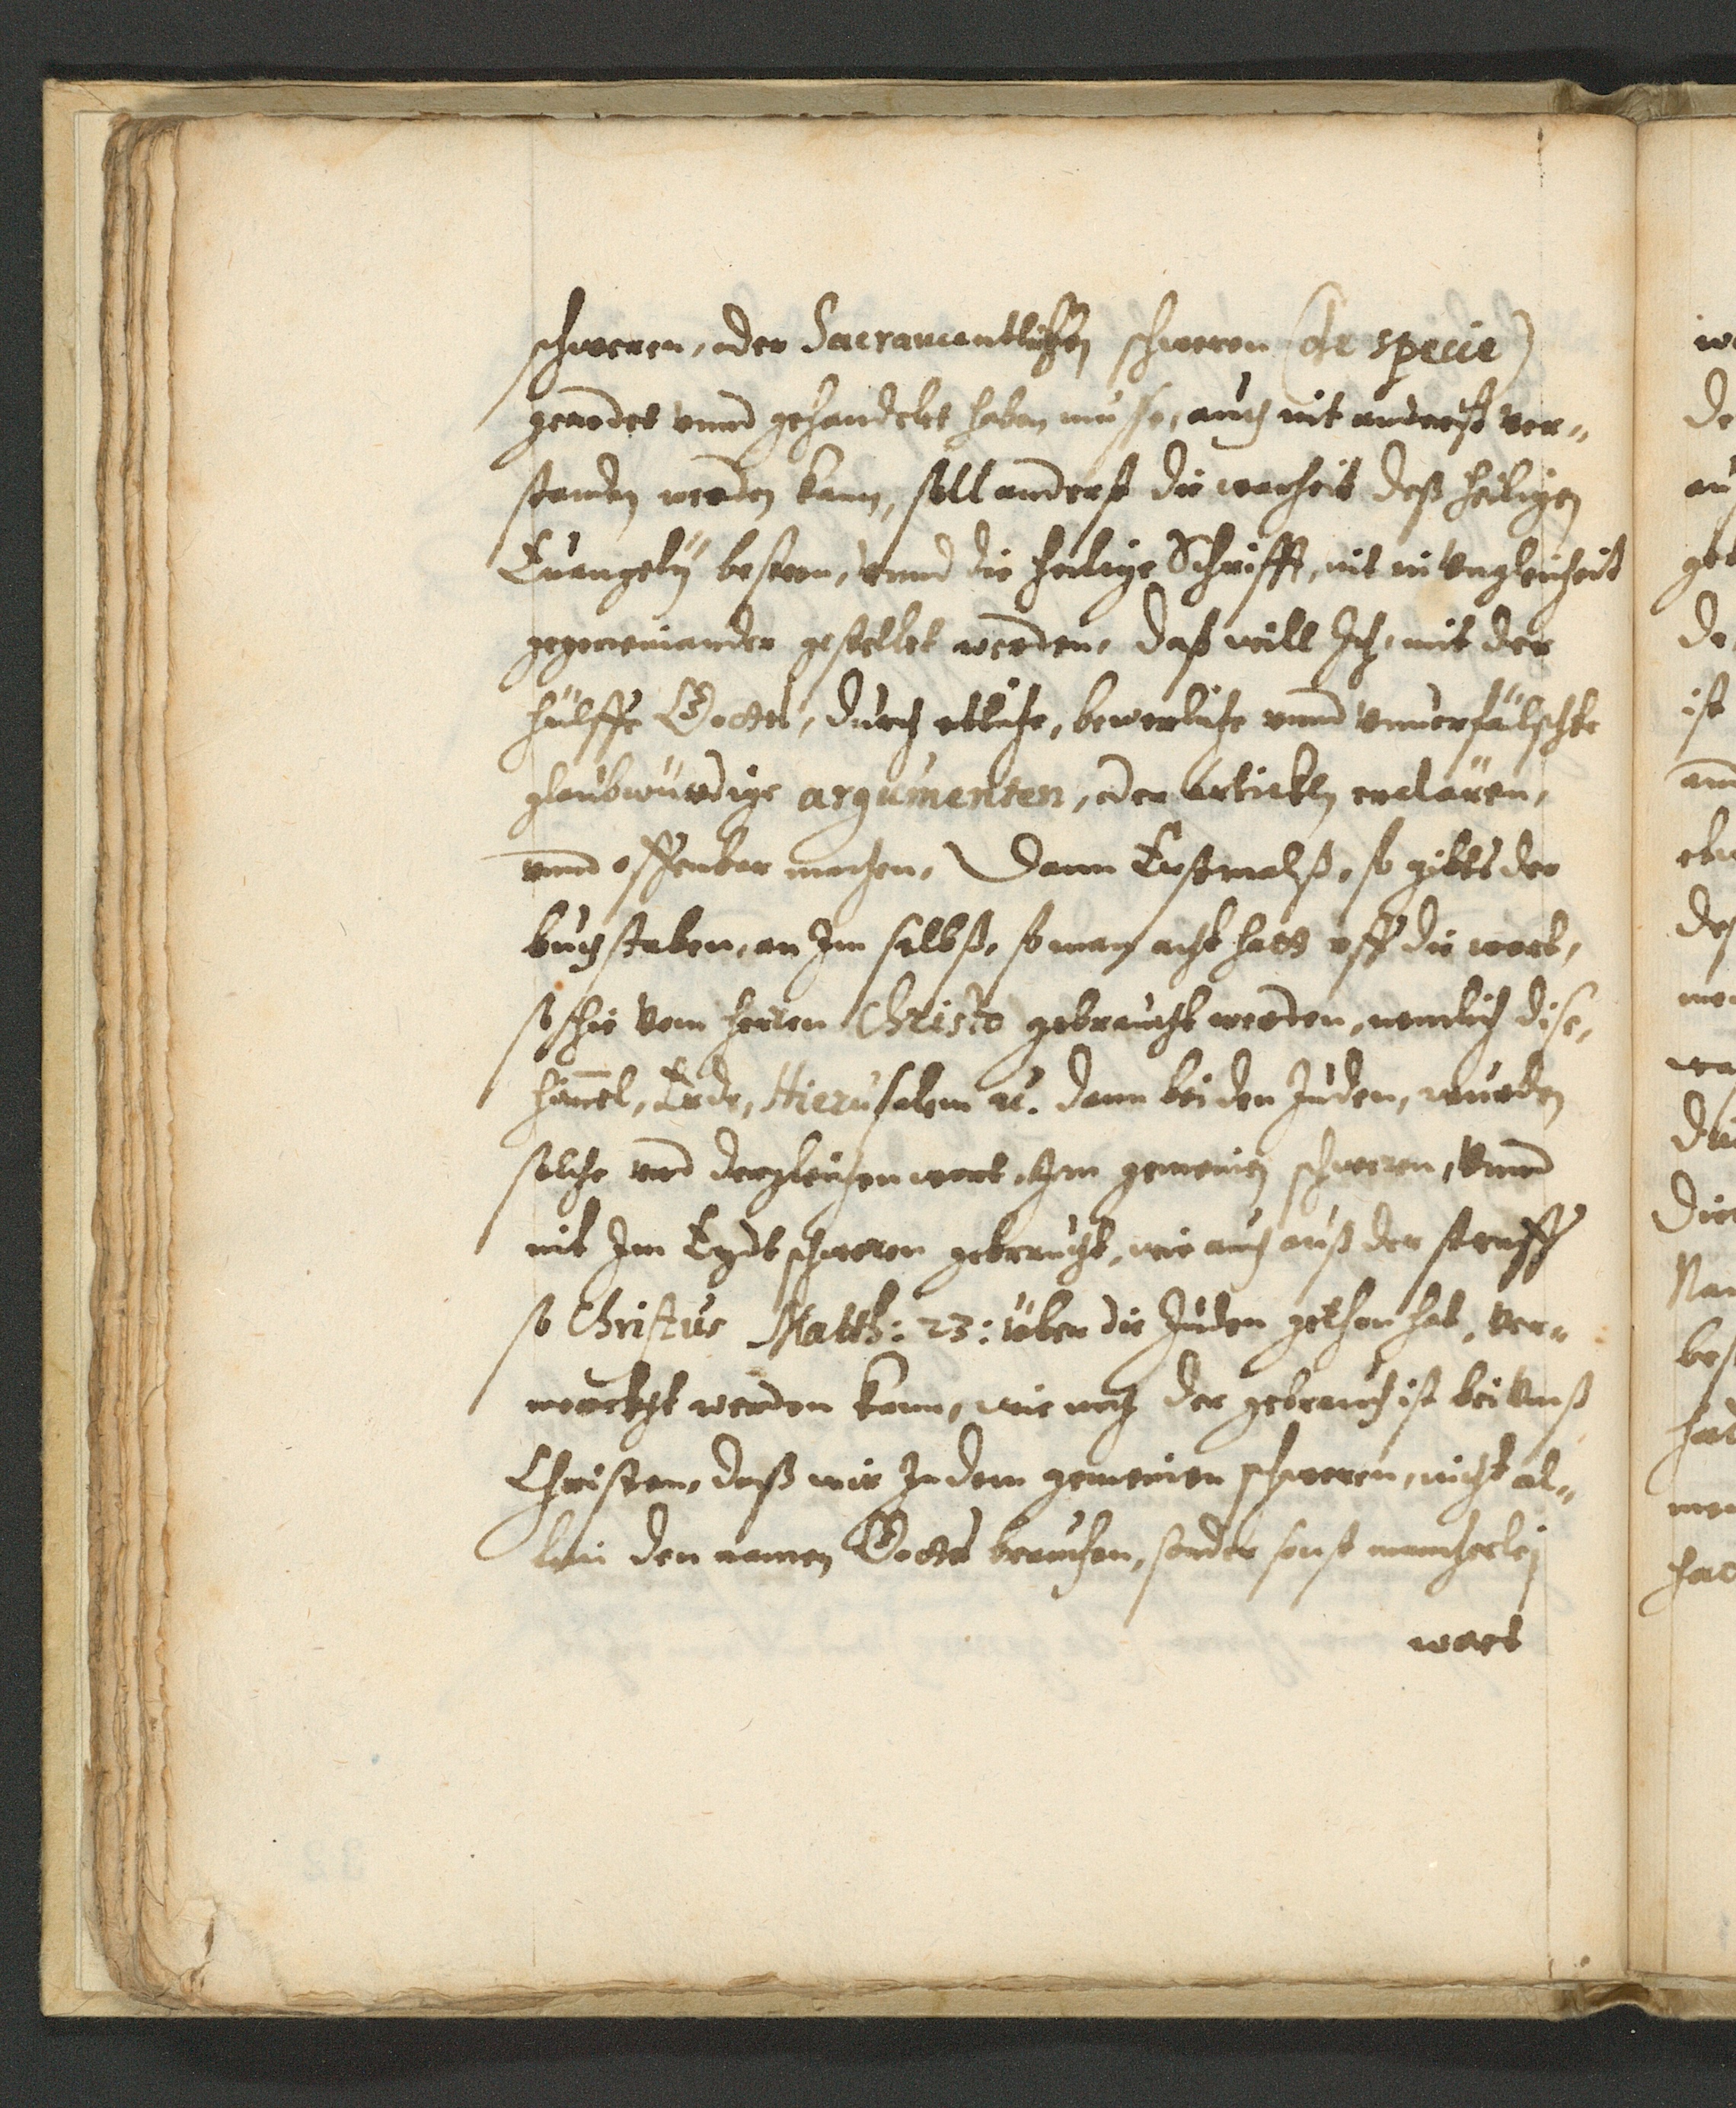 schweren, oder Sacramentlichen schweren (de specie)
geredet vnnd gehandelet haben müsse, auch nit anderst ver„
standen werden kann, soll anderst die warheit deß heiligen
Euangelÿ besteen, vnnd die heilige Schrifft, nit in Vngleicheit
gegeneinander gestellet werden, daß will Ich, mit der
hülffe Gottes, durch etliche, bewerliche vnnd vnuerfälschte
glaubwürdige argumenten, oder Artickln erclären,
vnnd offenbar machen. Dann Erstmalß, so gibts der
buchstaben, an Im selbß, so man acht hatt vff die wort,
so hie vom herren Christo gebraucht werden, nemlich dise,
him̄el, Erde, Hierusalem ꝛc. dann bei den Juden, wurden
solche vnd dergleichen wort, Im gemeinen schweren, vnnd
nit Im Eydtschweren gebraucht, wie auch auß der straff
so Christus Matth: 23: über die Juden gethon hat, ver„
merckht werden kann, wie auch der gebrauch ist bei Vnß
Christen, daß wir In dem gemeinen schweren, nicht al„
lein den namen Gottes brauchen, sonder sonst mancherleÿ
wort
we
De
au
geb
de
ist
ann
etw
des
men
wa
Du
Die
Nam
bes
hat
men
hat